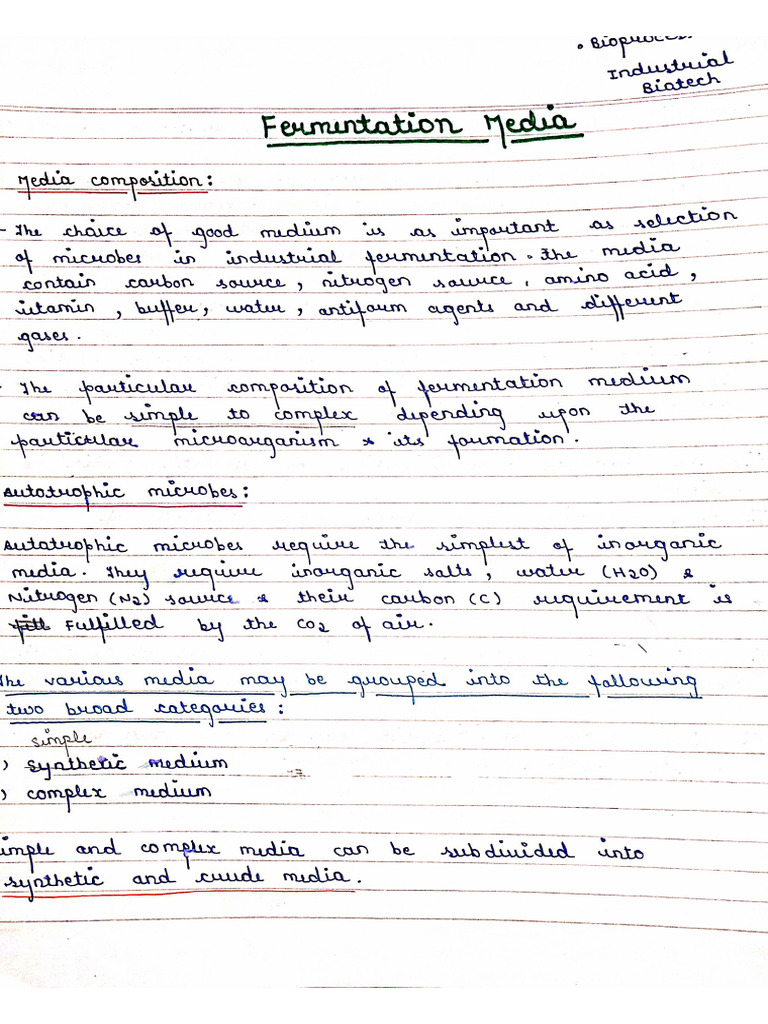 • Bioprocess
Industrial
Biatech
Fermentation Media
Media composition:
- The choice of good medium is as important as selection
of microbes in industrial fermentation. The media
contain carbon source, nitrogen source, amino acid,
vitamin, buffer, water, antiform agents and different
gases.
- The particular composition of fermentation medium
can be simple to complex depending upon the
particular microarganism & its formation.
Autotrophic microbes:
Autatrophic microbes require the simplest of inorganic
media. They require inorganic salts, water (H2O) &
Nitrogen (N2) source & their carbon (C) requirement is
Fulfilled by the CO2 of air.
The various media may be grouped into the following
two broad categories:
simple
) synthetic medium
) complex medium
imple and complex media can be subdivided into
synthetic and crude media.